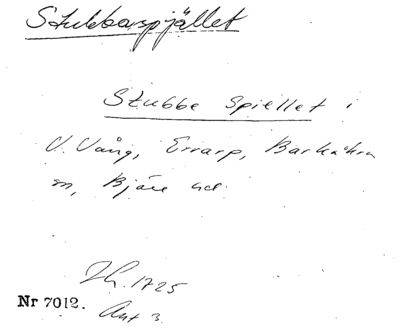 Stubbarpjället
Stubbe Spiellet i
V. Vång, Errarp, Barkåkra
sn, Bjäre hd.
Jb. 1725
Nr 7012.
Ant 3.